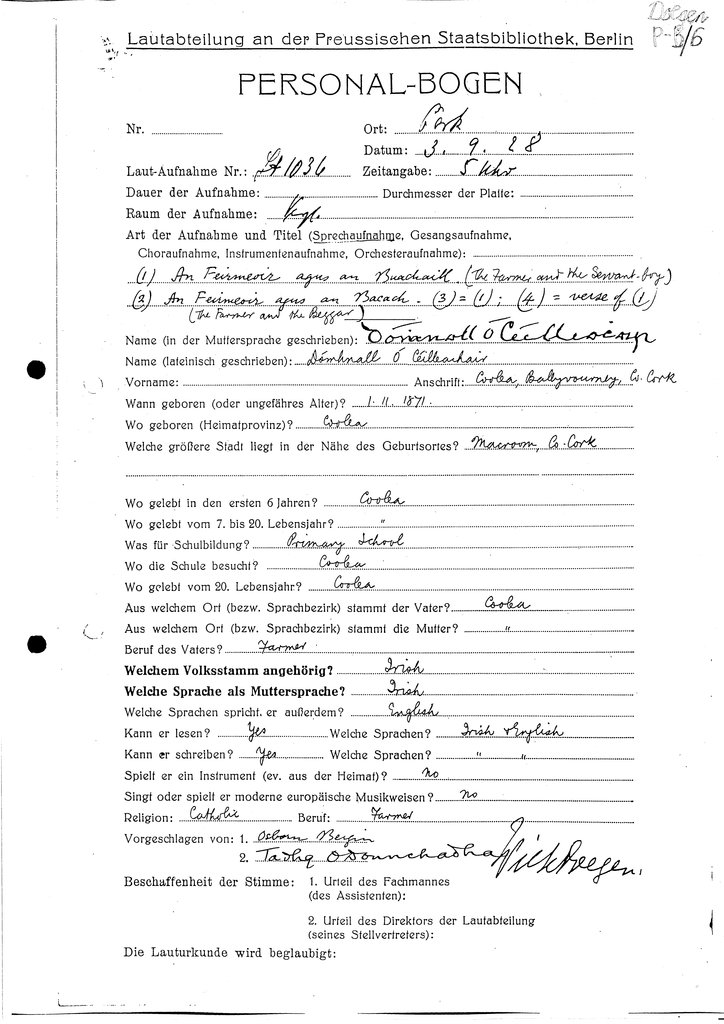 Doegen
P-B/6
Lautabteilung an der Preussischen Staatsbibliothek, Berlin
PERSONAL-BOGEN
Nr.
Ort: Cork
Datum: 3. 9. 28
Laut-Aufnahme Nr.: LA 1036 Zeitangabe: 5 Uhr
Dauer der Aufnahme: Durchmesser der Platte:
Raum der Aufnahme:
Art der Aufnahme und Titel (Sprechaufnahme, Gesangsaufnahme,
Choraufnahme, Instrumentenaufnahme, Orchesteraufnahme):
(1) An Feirmeoir agus an Buachaill. (The Farmer and the Servant-boy)
(2) An Feirmeoir agus an Bacach. (3) = (1) ; (4) = verse of (1)
(The Farmer and the Beggar)
Name (in der Muttersprache geschrieben): Domnall Ó Céilleacair
Name (lateinisch geschrieben): Dómhnall Ó Céilleachair
Vorname: Anschrift: Coolea, Ballyvourney, Co. Cork
Wann geboren (oder ungefähres Alter)? 1. 11. 1871.
Wo geboren (Heimatprovinz)? Coolea
Welche größere Stadt liegt in der Nähe des Geburtsortes? Macroom, Co. Cork
Wo gelebt in den ersten 6 Jahren? Coolea
Wo gelebt vom 7. bis 20. Lebensjahr? "
Was für Schulbildung? Primary School
Wo die Schule besucht? Coolea
Wo gelebt vom 20. Lebensjahr? Coolea
Aus welchem Ort (bezw. Sprachbezirk) stammt der Vater? Coolea
Aus welchem Ort (bzw. Sprachbezirk) stammt die Mutter? "
Beruf des Vaters? Farmer
Welchem Volksstamm angehörig? Irish
Welche Sprache als Muttersprache? Irish
Welche Sprachen spricht er außerdem? English
Kann er lesen? Yes Welche Sprachen? Irish & English
Kann er schreiben? Yes Welche Sprachen? " "
Spielt er ein Instrument (ev. aus der Heimat)? No
Singt oder spielt er moderne europäische Musikweisen? No
Religion: Catholic Beruf: Farmer
Vorgeschlagen von: 1. Osborn Bergin
2. Tadhg ODonnchadha Wilh Doegen.
Beschaffenheit der Stimme: 1. Urteil des Fachmannes
(des Assistenten):
2. Urteil des Direktors der Lautabteilung
(seines Stellvertreters):
Die Lauturkunde wird beglaubigt: